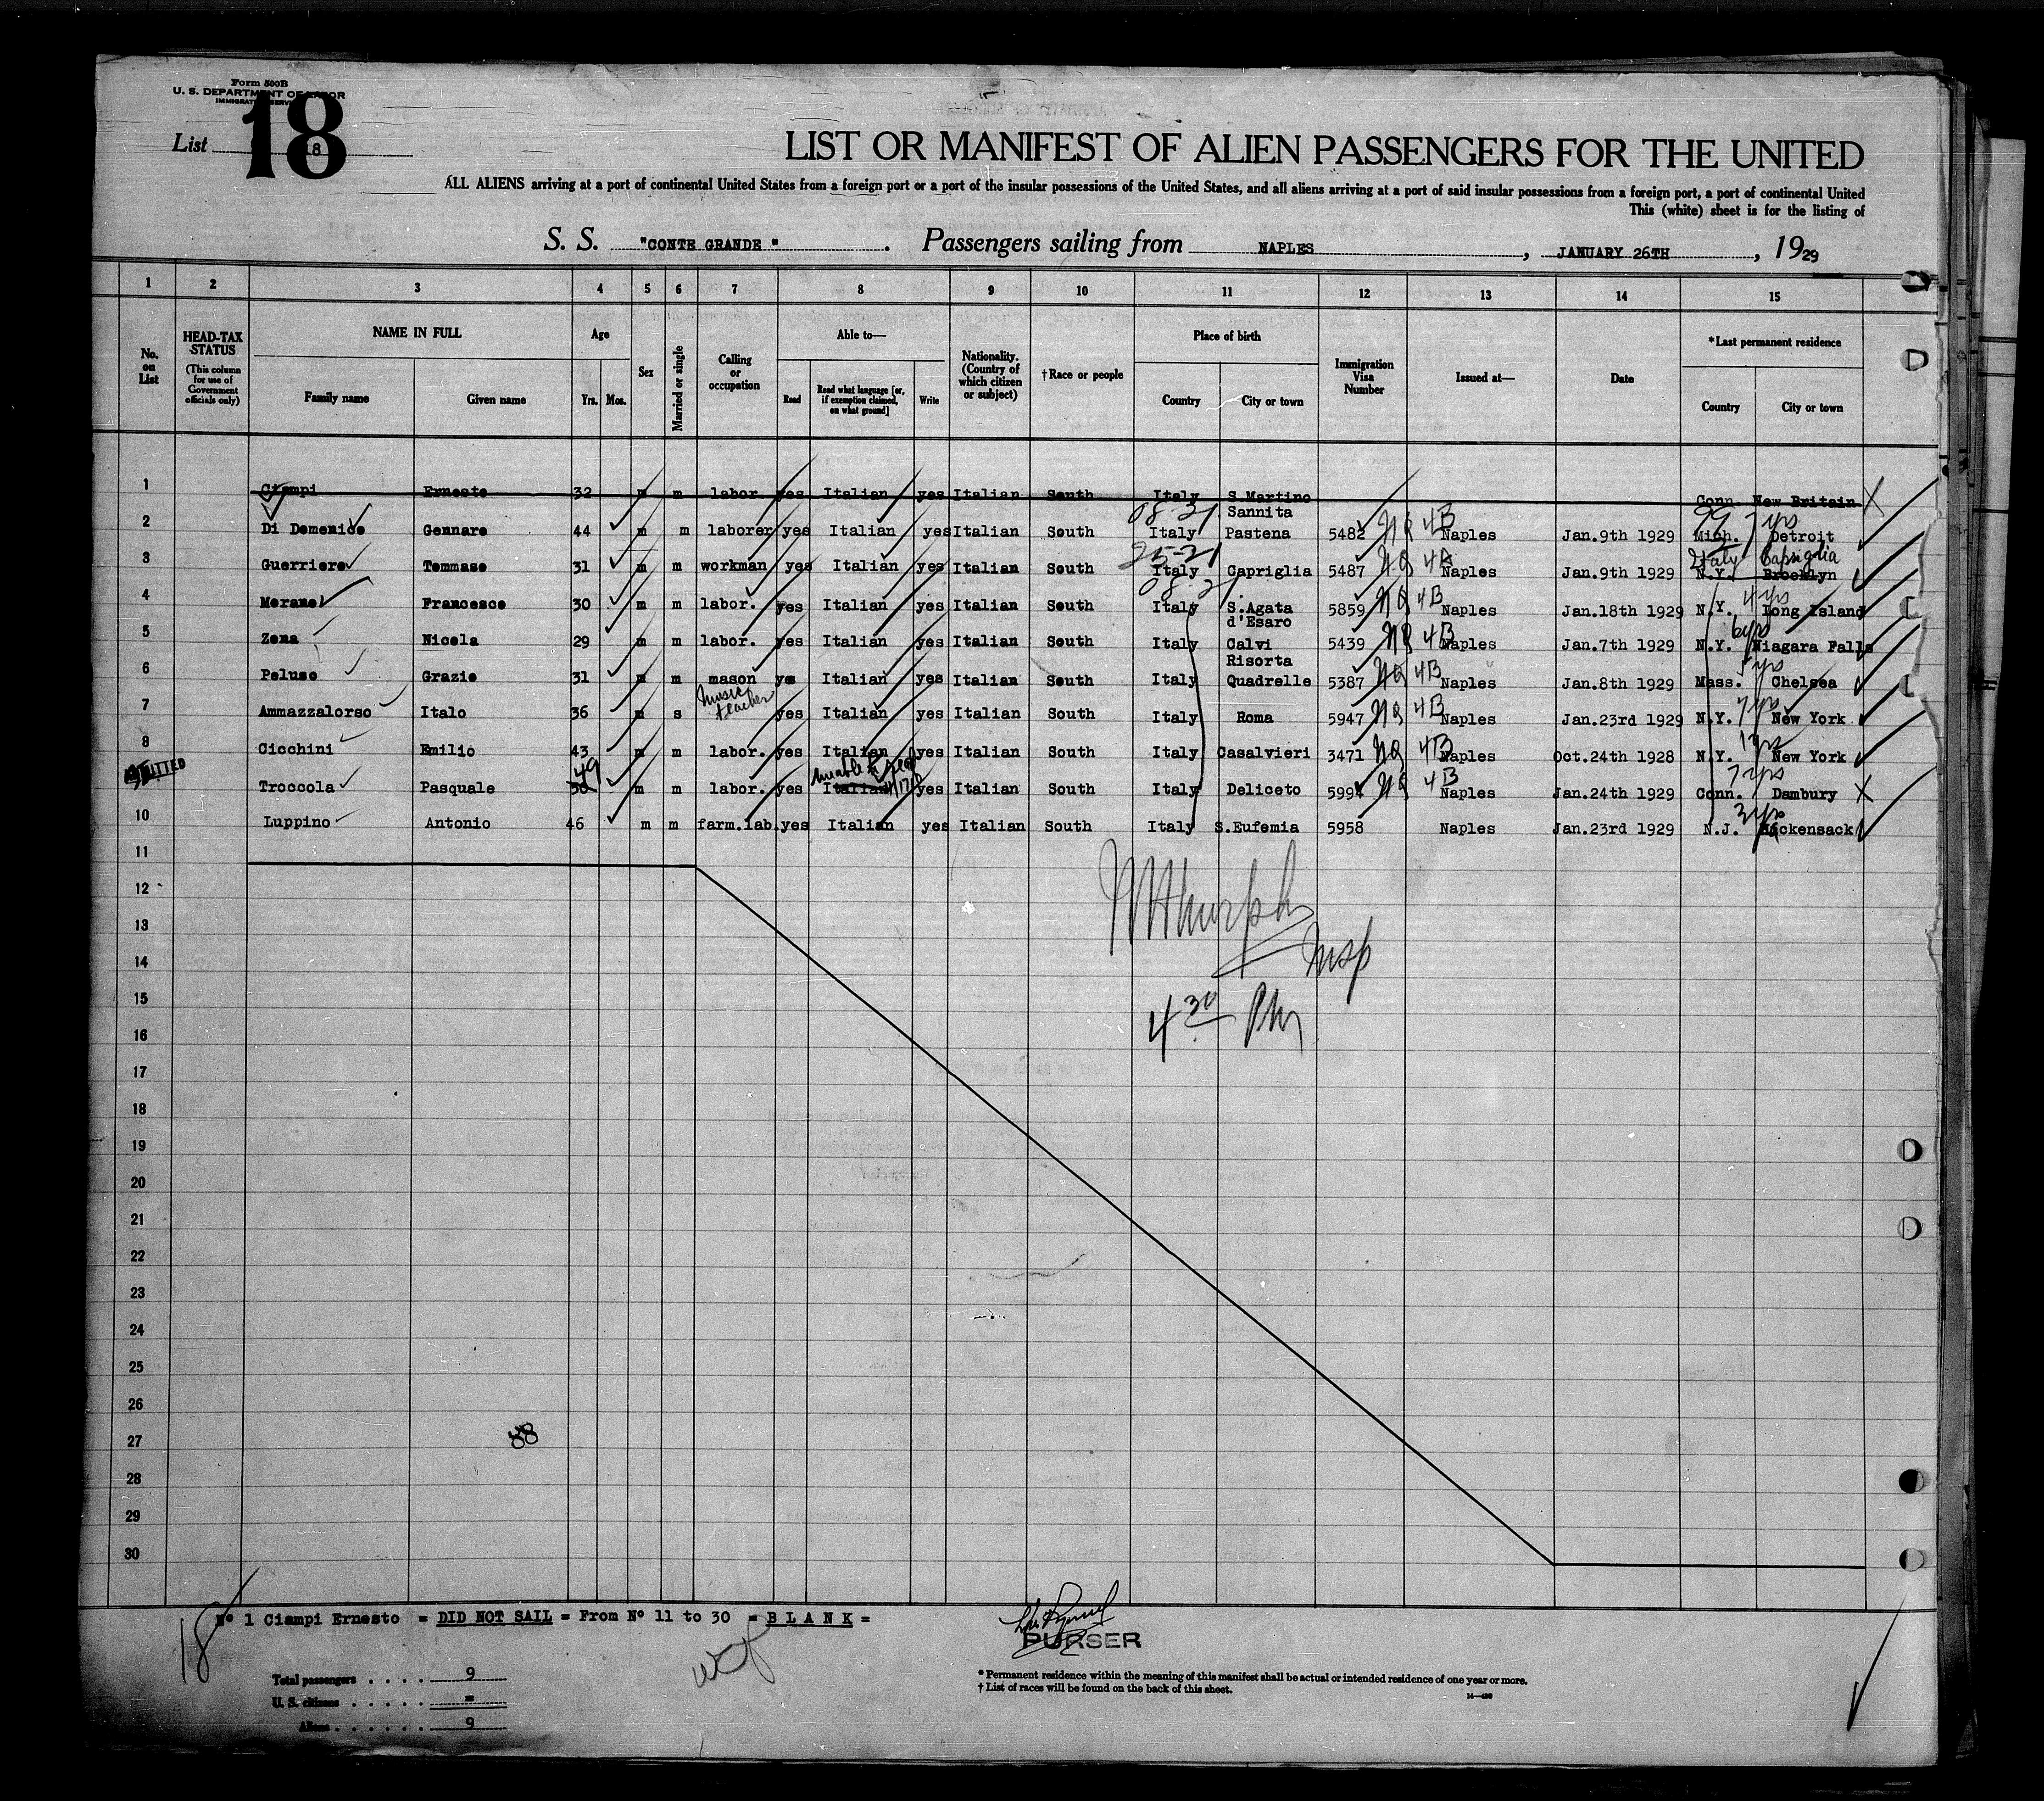 Form 500B
U. S. DEPARTMENT OF LABOR
IMMIGRATION SERVICE
List 18
18
LIST OR MANIFEST OF ALIEN PASSENGERS FOR THE UNITED
ALL ALIENS arriving at a port of continental United States from a foreign port or a port of the insular possessions of the United States, and all aliens arriving at a port of said insular possessions from a foreign port, a port of continental United
This (white) sheet is for the listing of
S. S. "CONTE GRANDE" . Passengers sailing from NAPLES , JANUARY 26TH , 1929
1 2 3 4 5 6 7 8 9 10 11 12 13 14 15
No. on List
HEAD-TAX STATUS (This column for use of Government officials only)
NAME IN FULL
Family name Given name
Age
Yrs. Mos.
Sex
Married or single
Calling or occupation
Able to—
Read Read what language [or, if exemption claimed, on what ground] Write
Nationality. (Country of which citizen or subject)
†Race or people
Place of birth
Country City or town
Immigration Visa Number
Issued at—
Date
*Last permanent residence
Country City or town
1 Ciampi Ernesto 32 m m labor yes Italian yes Italian South Italy S.Martino Sannita Conn. New Britain X
08-31 99 7 yrs
2 Di Domenico Gennaro 44 m m laborer yes Italian yes Italian South Italy Pastena 5482 NQ 4B Naples Jan.9th 1929 Mich. Detroit
25-21 Italy Capriglia
3 Guerriero Tommaso 31 m m workman yes Italian yes Italian South Italy Capriglia 5487 NQ 4A Naples Jan.9th 1929 N.Y. Brooklyn
08-31 4 yrs
4 Morano Francesco 30 m m labor. yes Italian yes Italian South Italy S.Agata d'Esaro 5859 NQ 4B Naples Jan.18th 1929 N.Y. Long Island
6 yrs
5 Zona Nicola 29 m m labor. yes Italian yes Italian South Italy Calvi Risorta 5439 NQ 4B Naples Jan.7th 1929 N.Y. Niagara Falls
yrs
6 Peluso Grazio 31 m m mason yes Italian yes Italian South Italy Quadrelle 5387 NQ 4B Naples Jan.8th 1929 Mass. Chelsea
music teacher 7 yrs
7 Ammazzalorso Italo 36 m s yes Italian yes Italian South Italy Roma 5947 NQ 4B Naples Jan.23rd 1929 N.Y. New York
yrs
8 Cicchini Emilio 43 m m labor. yes Italian yes Italian South Italy Casalvieri 3471 NQ 4B Naples Oct.24th 1928 N.Y. New York
ADMITTED 49 unable to read 7 yrs
Troccola Pasquale 50 m m labor. yes Italian yes Italian South Italy Deliceto 5994 NQ 4B Naples Jan.24th 1929 Conn. Dambury X
3 yrs
10 Luppino Antonio 46 m m farm.lab. yes Italian yes Italian South Italy S.Eufemia 5958 Naples Jan.23rd 1929 N.J. Hackensack
11
12
13
Insp
14
15
4 30 PM
16
17
18
19
20
21
22
23
24
25
26
27
88
28
29
30
18
Nº 1 Ciampi Ernesto = DID NOT SAIL = From Nº 11 to 30 = B L A N K =
PURSER
Total passengers . . . . 9
U. S. citizens . . . . . =
Aliens . . . . . . 9
* Permanent residence within the meaning of this manifest shall be actual or intended residence of one year or more.
† List of races will be found on the back of this sheet.